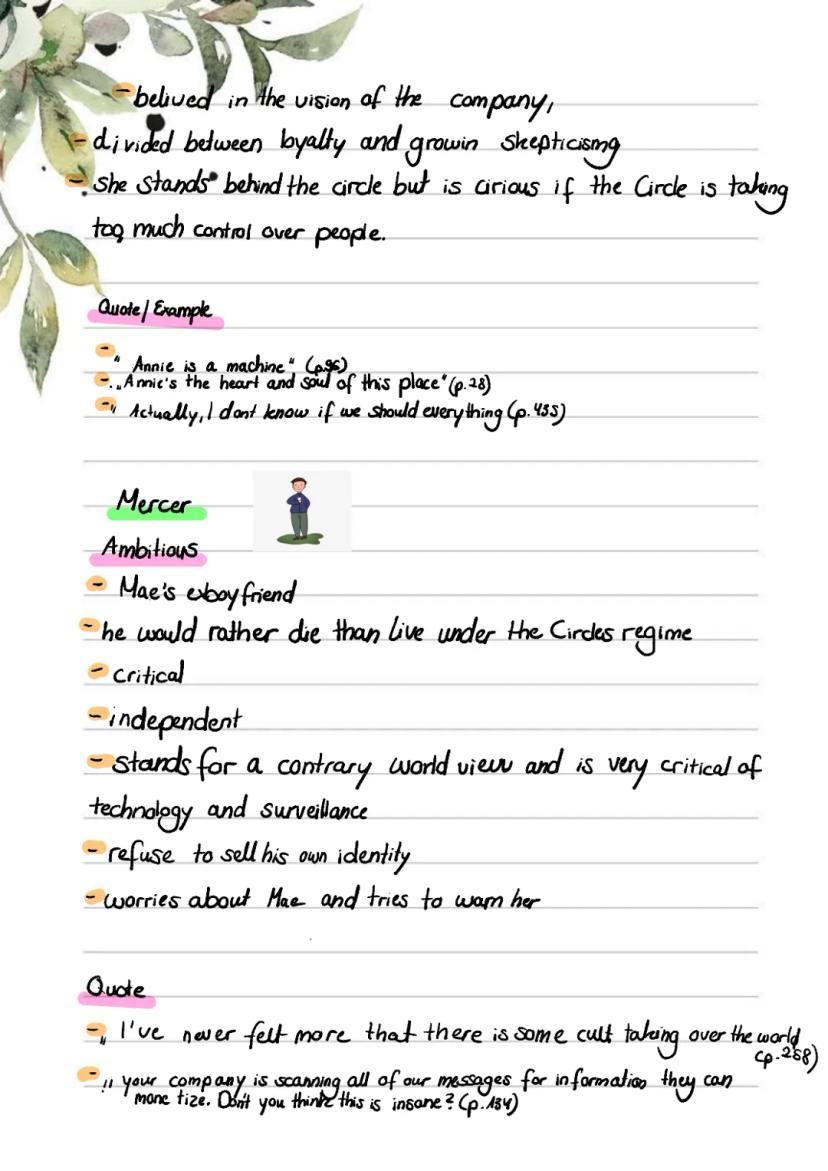 - belived in the vision of the company,
- divided between loyalty and growin skepticismg
- she stands behind the circle but is cirious if the Circle is taking
too much control over people.
Quote/Example
- " Annie is a machine" (p.96)
- „Annie's the heart and soul of this place" (p.28)
- " Actually, I dont know if we should everything (p.435)
Mercer
Ambitious
- Mae's exboyfriend
- he would rather die than live under the Circles regime
- critical
- independent
- stands for a contrary world view and is very critical of
technology and surveillance
- refuse to sell his own identity
- worries about Mae and tries to warn her
Quote
- „ I've never felt more that there is some cult taking over the world
(p.258)
- „ your company is scanning all of our messages for information they can
mone tize. Don't you think this is insane? (p.134)